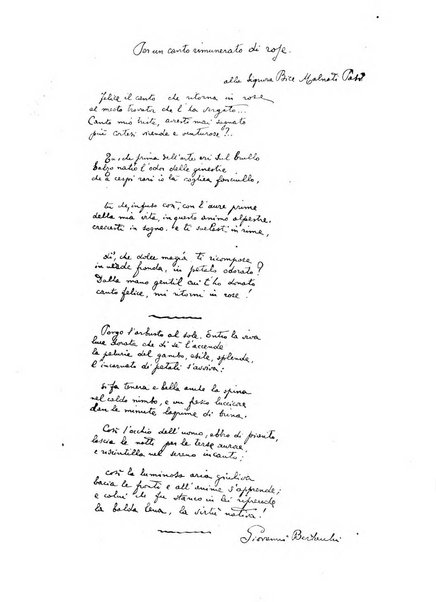 Per un canto rimunerato di rose.
alla Signora Bice Malnati
Felice il canto che ritorna in rose
al mesto trovator che l'ha vergato...
Canto mio triste, avresti mai sognato
più cortesi vicende e venturose?..
Tu, che prima dell'arte eri sul brullo
balzo natio l'odor delle ginestre
che a cespi rari io là coglieva fanciullo,
tu che, infuso così, con l'aure prime
della mia vita, in questo animo alpestre,
crescesti in sogno e ti svelesti in rima,
di', che dolce magia ti ricompose
in verde fronda, in petalo odorato?
Dalla mano gentil cui t'ho donato
canto felice, mi ritorni in rose!
Porgo l'arbusto al sole. Entro la viva
luce dorata che di sè l'accende
la peluria del gambo, esile, splende,
l'incarnato di petali s'avviva:
si fa tenera e bella anche la spina
nel caldo nimbo, e un fresco luccicore
dan le minute lagrime di brina.
Così l'occhio dell'uomo, ebbro di pianto,
lascia la notte per le terse aurore
e riscintilla nel sereno incanto;
così la luminosa aria giuliva
bacia le fronti e all'anime s'apprende;
e colui che fu stanco in lei riprende
la balda lena, la virtù nativa!
Giovanni Bertacchi